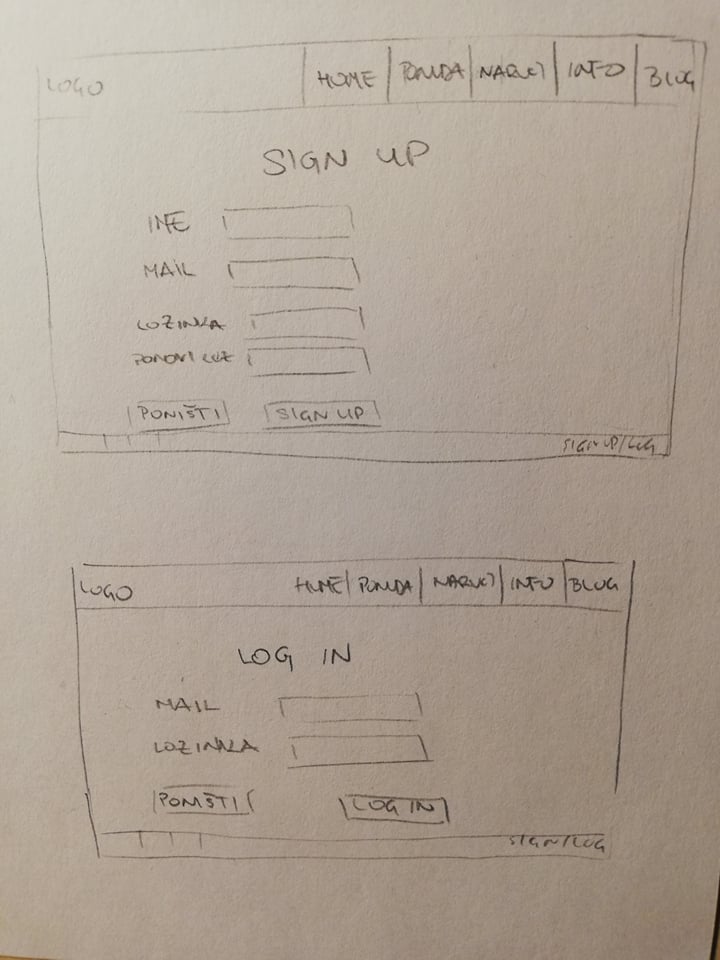 LOGO HOME PONUDA NARUČI INFO BLOG
SIGN UP
IME
MAIL
LOZINKA
PONOVI LOZ
PONIŠTI SIGN UP
SIGN UP/LOG
LOGO HOME PONUDA NARUČI INFO BLOG
LOG IN
MAIL
LOZINKA
PONIŠTI LOG IN
SIGN/LOG